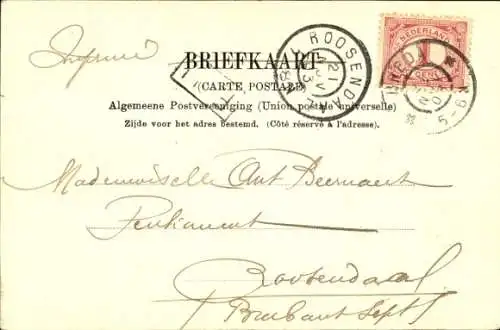 Imprimé
BRIEFKAART
(CARTE POSTALE)
Algemeene Postvereeniging (Union postale universelle)
Zijde voor het adres bestemd. (Côté réservé à l'adresse).
ROOSENDAAL
21
NEDERLAND
1
CENT
BREDA
5-6N
Mademoiselle Ant Beernaert
Roosendaal
Brabant Sept